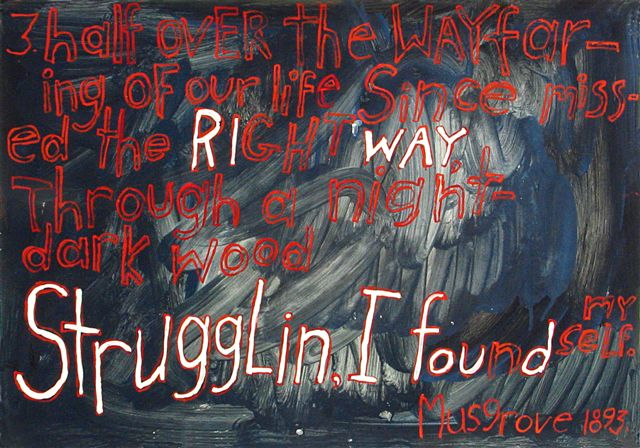 3. half OVER the WAYfar-
ing OF our life Since miss-
ed the RIGHT WAY,
Through a night-
dark wood
StruggLin, I found my self.
Musgrove 1893.